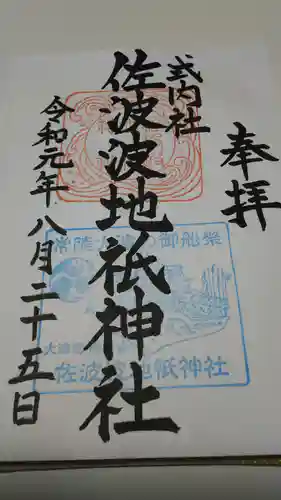 奉拝
式内社
佐波波地祇神社
令和元年八月二十五日
常陸大津の御船祭
佐波波地祇神社